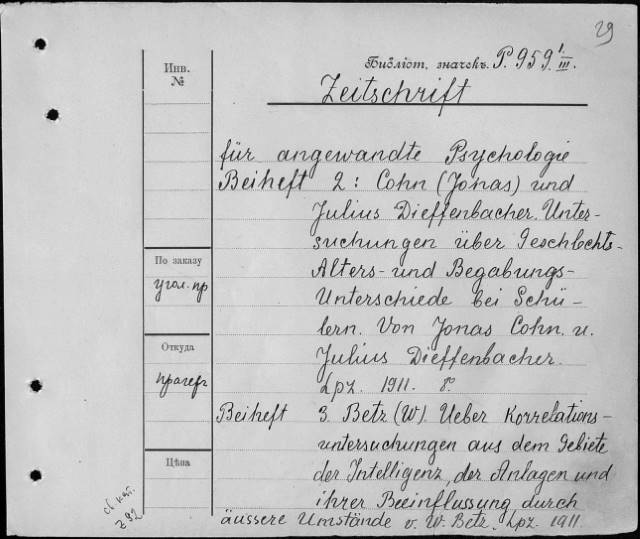 29
Библіот. значекъ. P. 959 I/III.
Инв.
№
Zeitschrift
für angewandte Psychologie
Beiheft 2: Cohn (Jonas) und
Julius Dieffenbacher. Unter-
suchungen über Geschlechts-
Alters- und Begabungs-
Unterschiede bei Schü-
lern. Von Jonas Cohn. u.
Julius Dieffenbacher.
Lpz. 1911. 8°.
Beiheft 3. Betz (W). Ueber Korrelations-
untersuchungen aus dem Gebiete
der Intelligenz, der Anlagen und
ihrer Beeinflussung durch
äussere Umstände v. W. Betz. Lpz. 1911.
По заказу
угол. пр
Откуда
Цѣна